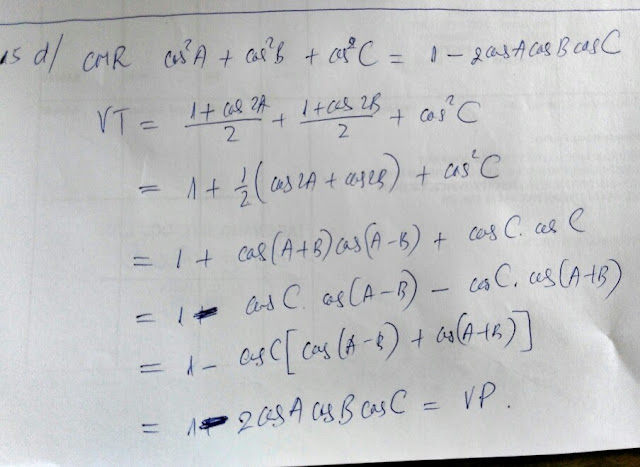 15 d/ CMR cos²A + cos²B + cos²C = 1 - 2cosAcosBcosC
VT = (1+cos2A)/2 + (1+cos2B)/2 + cos²C
= 1 + 1/2 (cos2A + cos2B) + cos²C
= 1 + cos(A+B)cos(A-B) + cosC.cosC
= 1 - cosC.cos(A-B) - cosC.cos(A+B)
= 1 - cosC[cos(A-B) + cos(A+B)]
= 1 - 2cosAcosBcosC = VP.